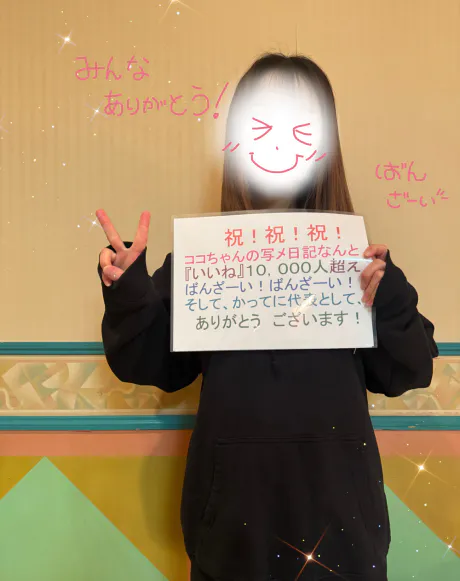 みんな
ありがとう!
ばん
ざーい
祝!祝!祝!
ココちゃんの写メ日記なんと
『いいね』10,000人超え
ばんざーい!ばんざーい!
そして、かってに代表として、
ありがとう ございます!